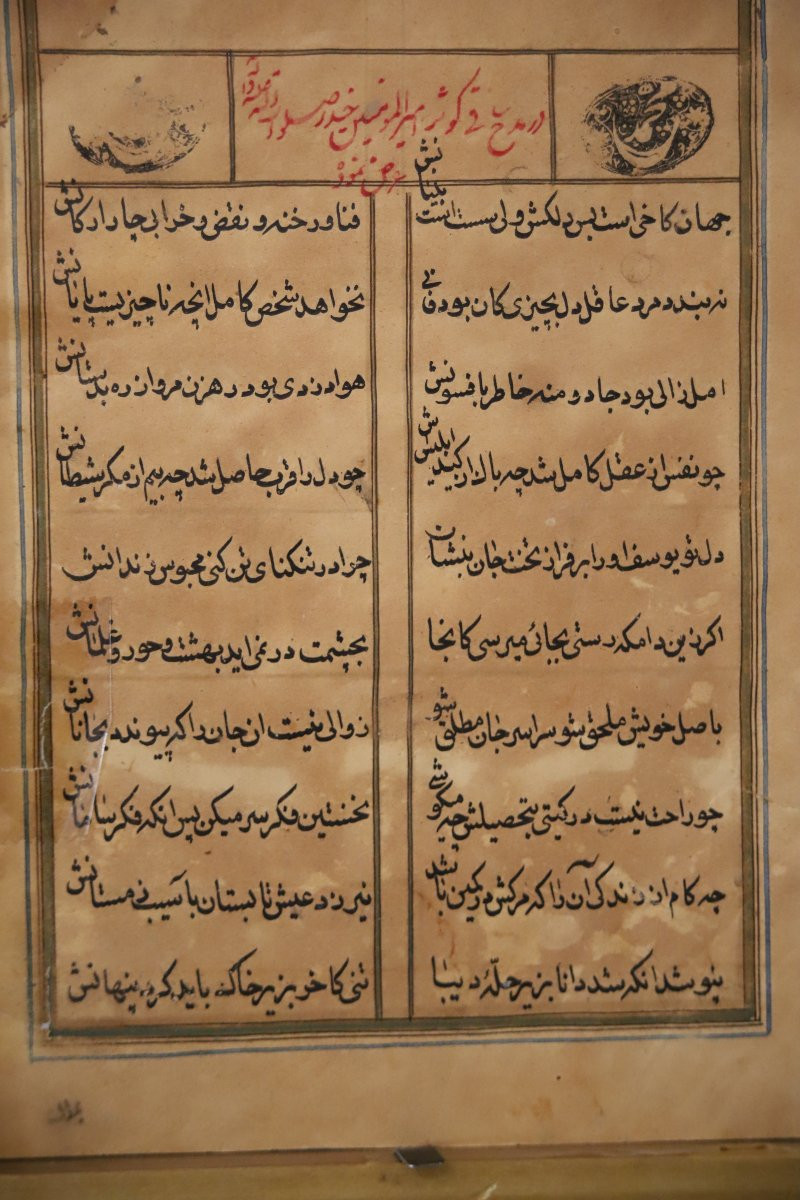 در مدح ساقی کوثر امیرالمومنین حیدر صلوات الله علیه و آله
عرض نموده
جهان کاخی است بس دلکش ولی سست است بنیانش
فنا و رخنه و نقض و خرابی چار ارکانش
نه بندد مرد عاقل دل بچیزی کان بود فانی
نخواهد شخص کامل انچه ناچیز نیست پایانش
امل زالی بود جادو منه خاطر بافسونش
هوا دزدی بود رهزن مرو از ره بدستانش
چو نفس از عقل کامل شد چه باک از کید ابلیسش
چو دل را قرب حاصل شد چه بیم از مکر شیطانش
دل تو یوسف او را بر فراز تخت جان بنشان
چرا در تنکنای تن کنی محبوس زندانش
اکر زین دامکه رستی بجائی میرسی کانجا
بچشمت در نمی اید بهشت و حور و غلمانش
باصل خویش ملحق شو سراسر جان مطلق شو
زوالی نیست ان جان را که پیوندد بجانانش
چو راحت نیست در کیتی بتحصیلش چه میکوشی
نخستین فکر سر میکن پس انکه فکر سامانش
چه کام از زندکی آن را که مرکش در کمین باشد
نیرزد عیش تابستان باسیب زمستانش
بپوشد انکه شد دانا بزیر حلهٔ دیبا
تنی کاخر بزیر خاک باید کرد پنهانش